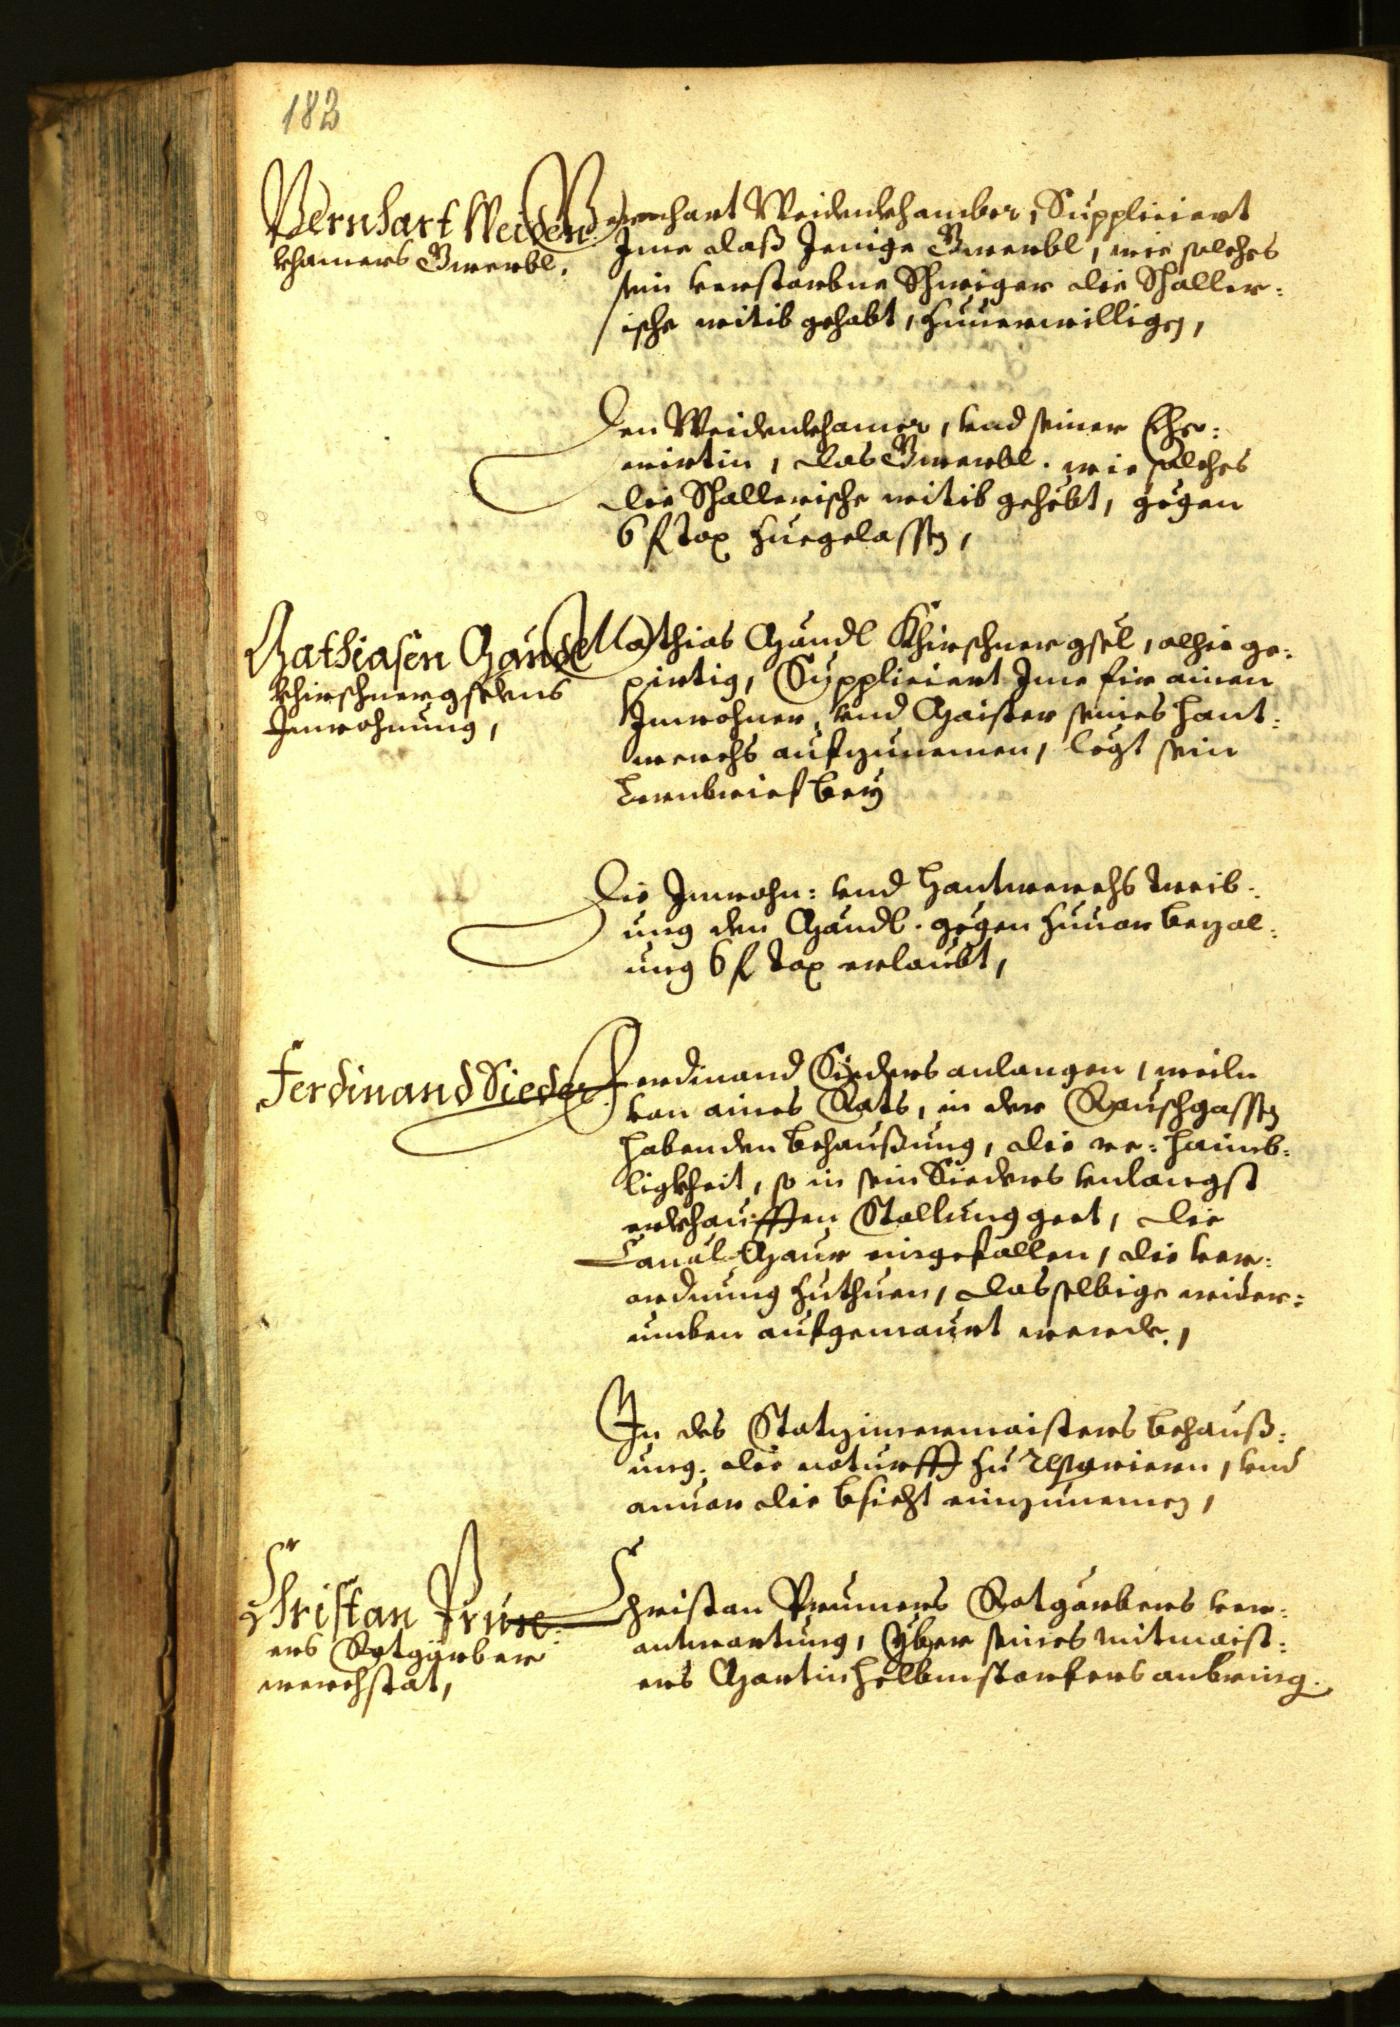 183
Bernhart Weiden
khamers Gwerbl.
Bernhart Weidenkhamber, Suppliciert
Jme daß Jenige Gwerbl, wie solches
sein verstorbne Schwiger die Schaller-
ische witib gehabt, zuuerwilligen,
Den Weidenkhamer, vnd seiner Ehe-
wirtin, das Gwerbl. wie solches
die Schallerische witib gehebt, gegen
6 f Tax zuegelassen,
Mathiasen Gändl
khirschnergselens
Jnwohnung,
Mathias Gändl Khirschnergsel, alhie ge-
pirtig, Suppliciert Jme fir ainen
Jnwohner, vnd Maister seines Hant-
werchs aufzunemen, legt sein
Lernbrief bey
Die Jnwohn- vnd Hantwerchs treib-
ung den Gändl. gegen zuuor bezal-
ung 6 f Tax erlaubt,
Ferdinand Sieder
Ferdinand Sieders anlangen, weiln
von aines Rats, in der Rauschgassen
habenden behaußung, die re: haimb-
ligkheit, so in sein Sieders vnlangst
erkhaufften Stallung geet, die
Canal Maur eingefallen, die ver-
ordnung zuthuen, das selbige wider-
umben aufgemaurt werde,
Jn des Statzimermaisters behauß-
ung. die noturfft zu repariern, vnd
anuor die bsicht einzunemen,
Christan Prun-
ers Rotgärber
werchstat,
Christan Pruners Rotgärbers ver-
antwortung, yber seines mitmaist-
ers Martin Helbmstorfers anbring.